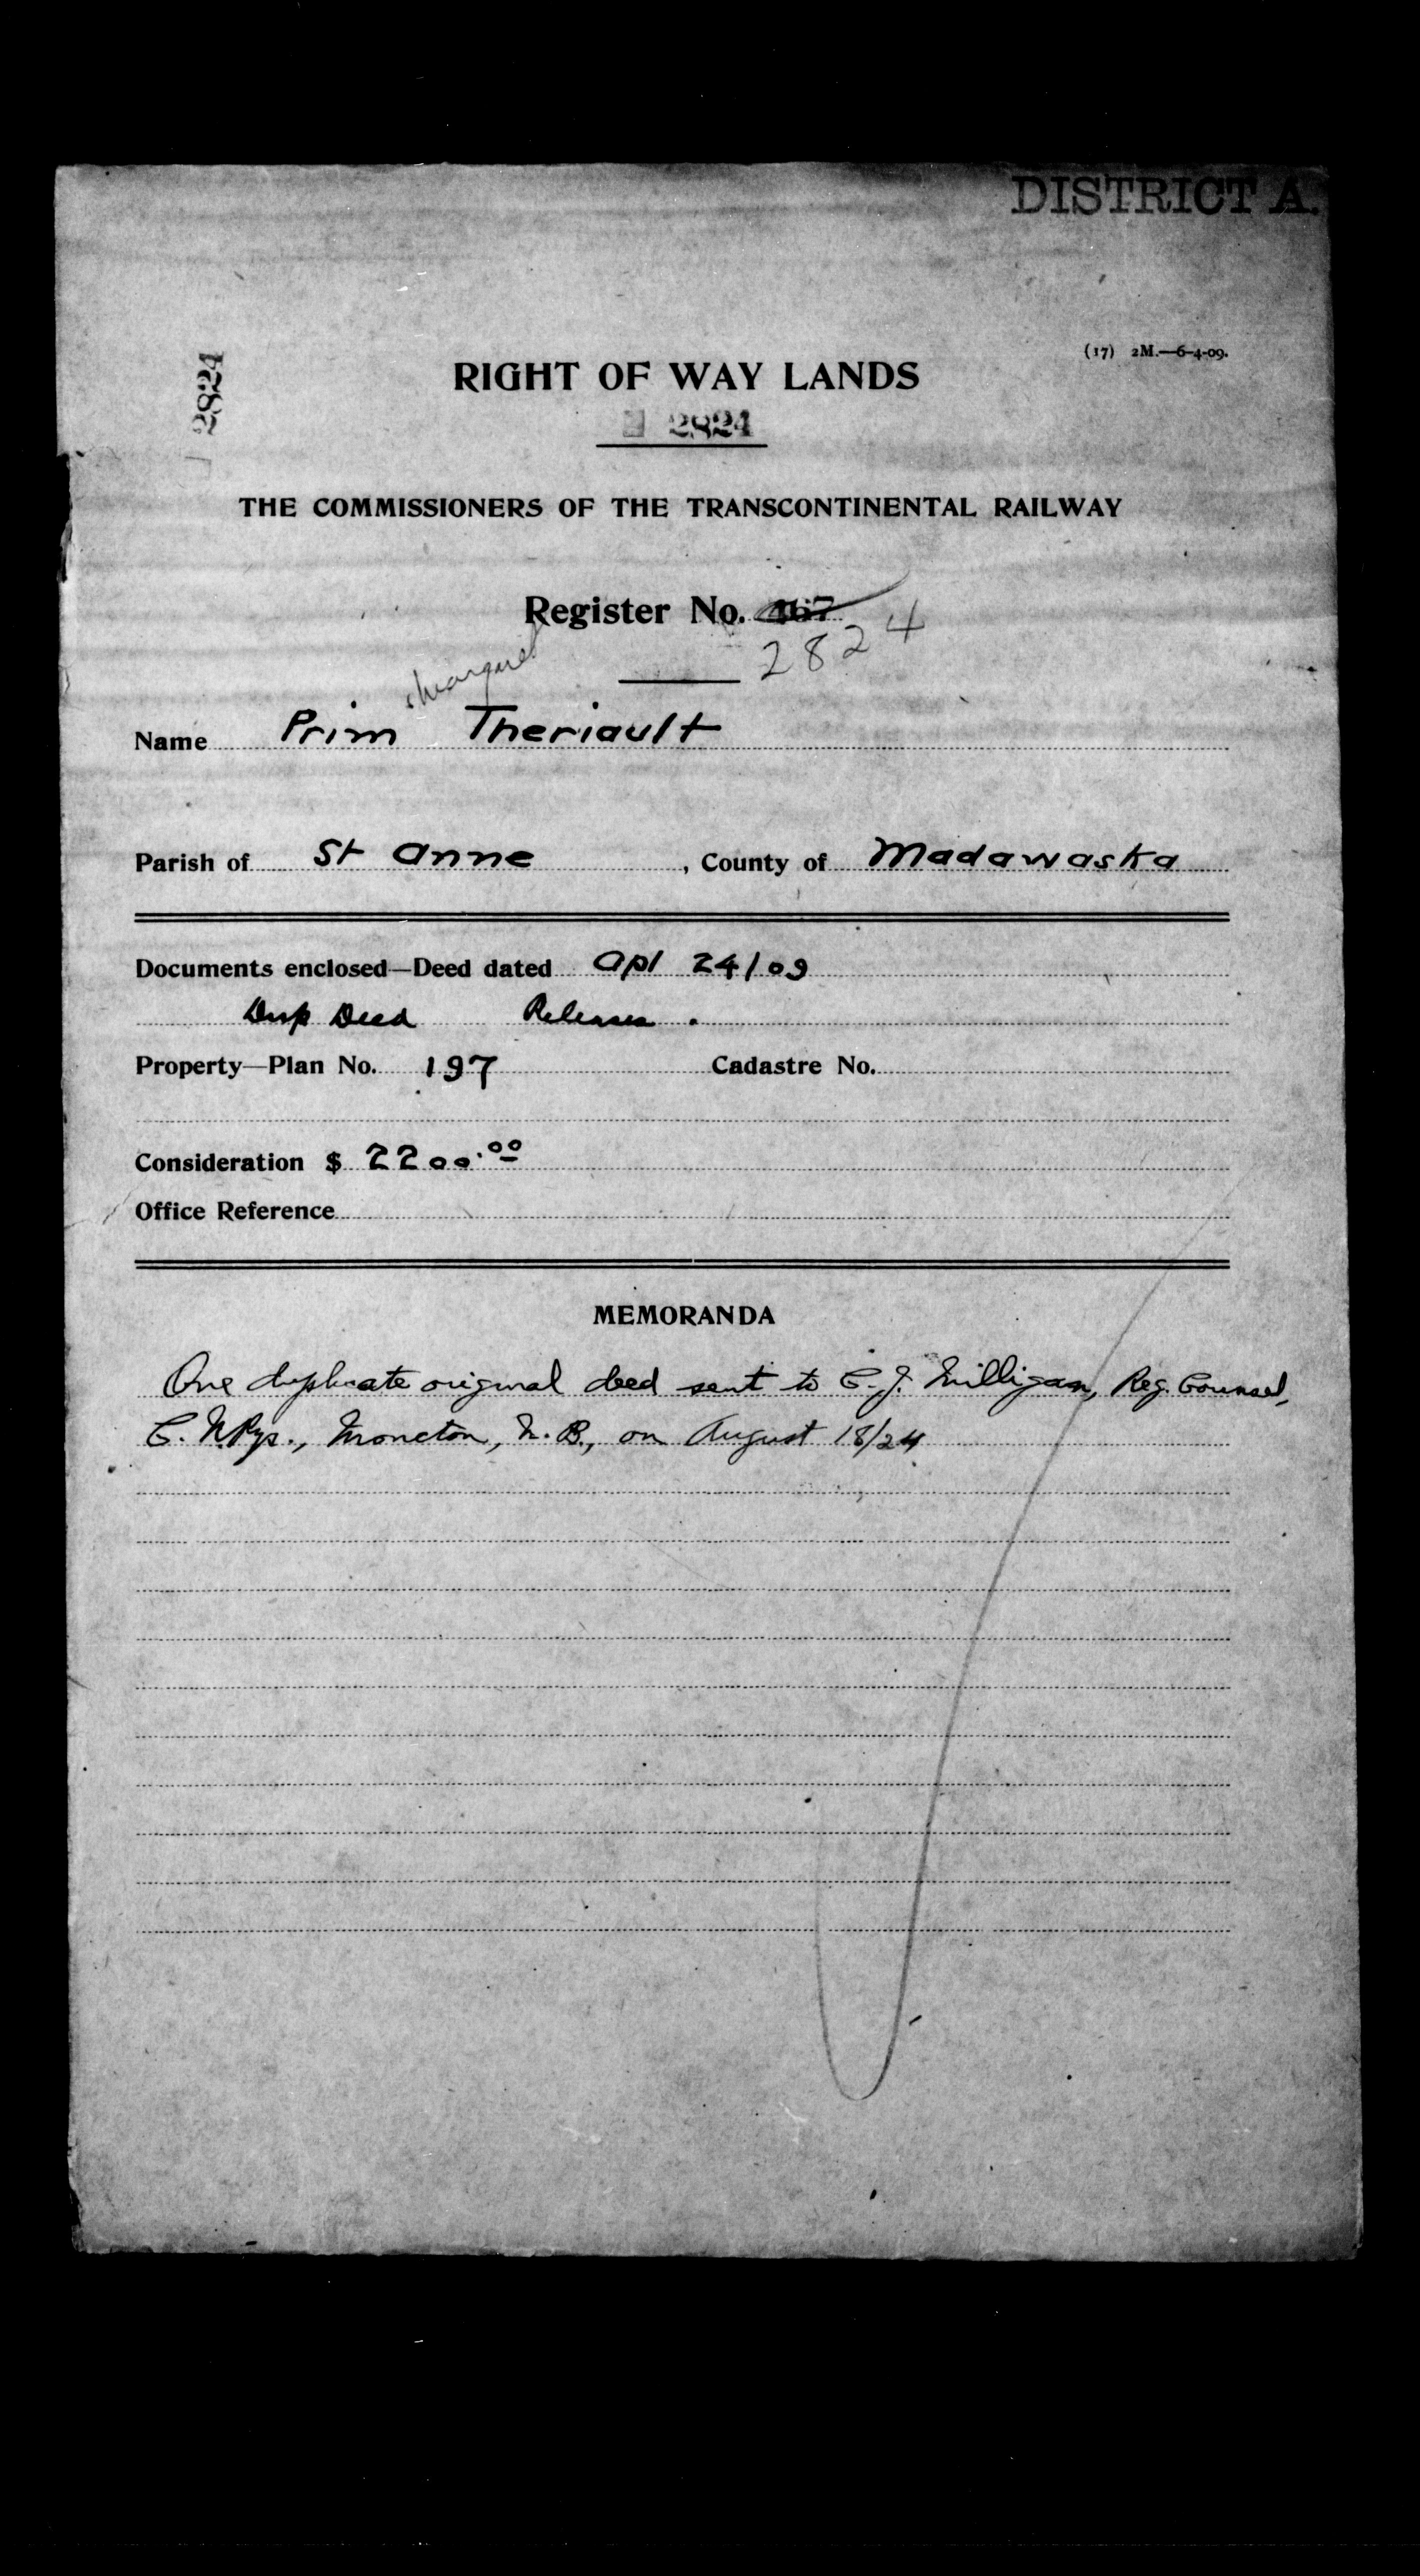 DISTRICT A.
(17) 2M.—6-4-09.
2824
RIGHT OF WAY LANDS
2824
THE COMMISSIONERS OF THE TRANSCONTINENTAL RAILWAY
Register No. 467
2824
Margaret
Name Prim Theriault
Parish of St Anne, County of Madawaska
Documents enclosed—Deed dated Apl 24/09
Dup Deed Releases.
Property—Plan No. 197 Cadastre No.
Consideration $ 2200.00
Office Reference
MEMORANDA
One duplicate original deed sent to C. J. Milligan, Reg. Counsel,
C. N. Rys., Moncton, N. B., on August 18/24